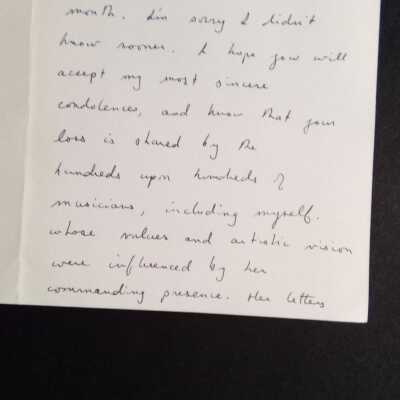 month. I'm sorry I didn't
know sooner. I hope you will
accept my most sincere
condolences, and know that your
loss is shared by the
hundreds upon hundreds of
musicians, including myself.
whose values and artistic vision
were influenced by her
commanding presence. Her letters